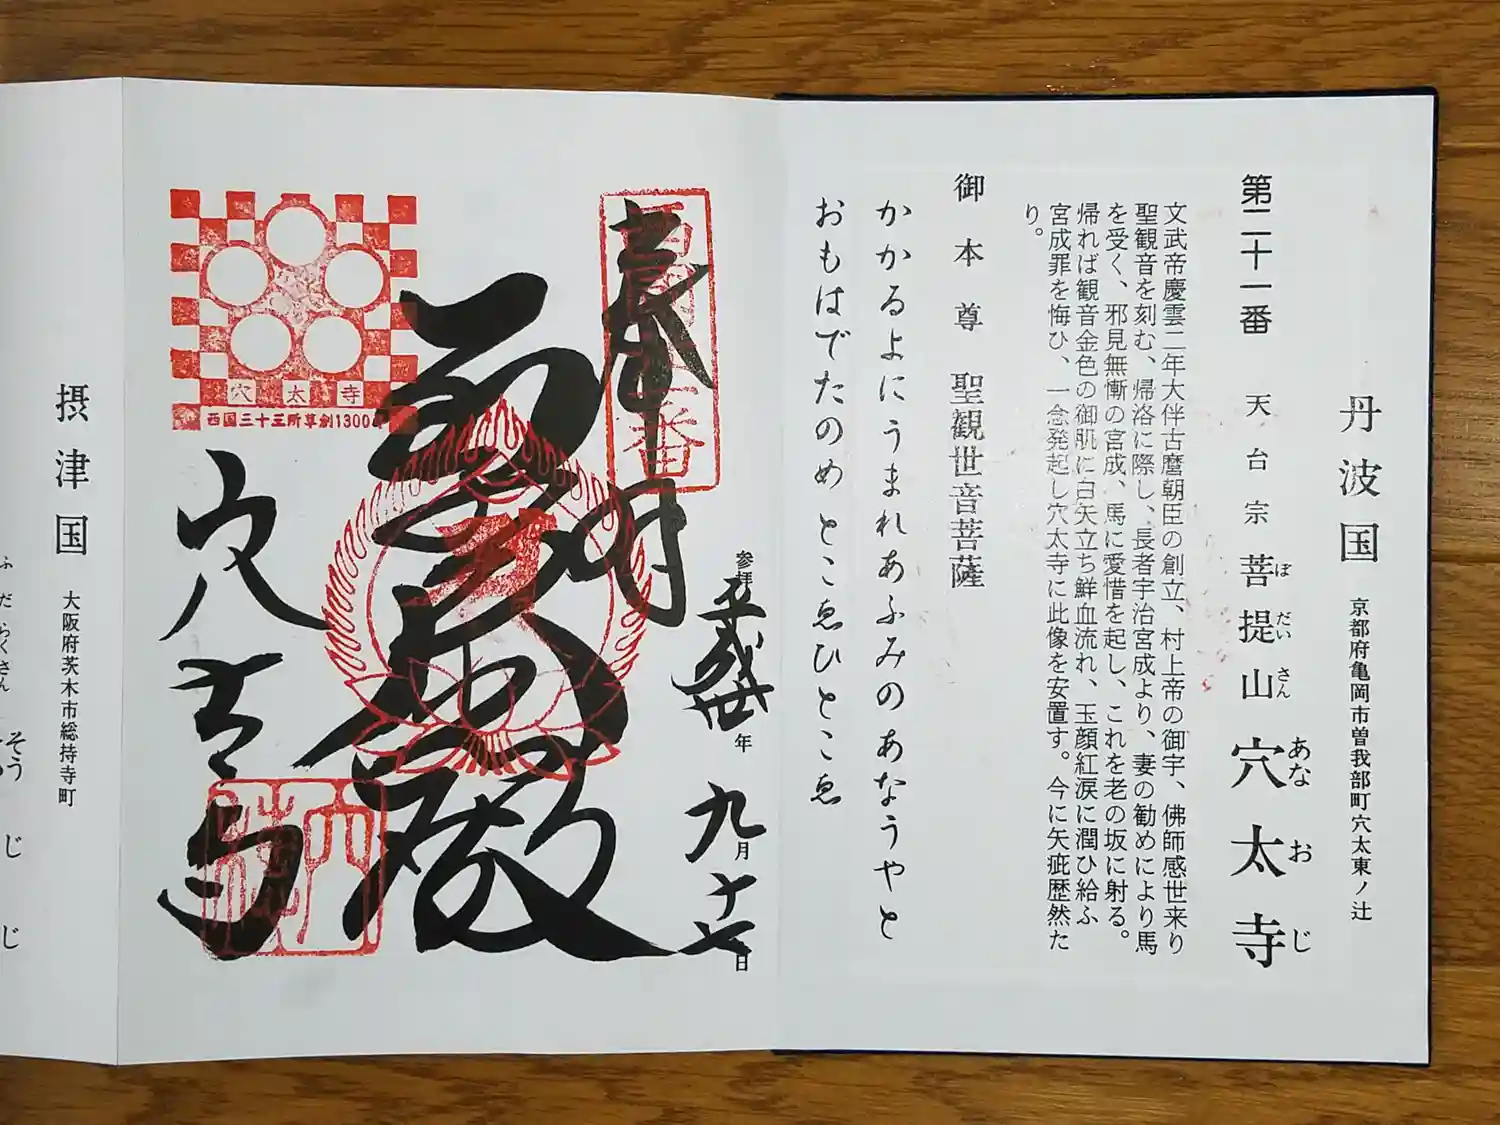 丹波国 京都府亀岡市曽我部町穴太東ノ辻
第二十一番 天台宗 菩提山 穴太寺
ぼ だい さん あな お じ
文武帝慶雲二年大伴古麿朝臣の創立、村上帝の御宇、佛師感世来り
聖観音を刻む、帰洛に際し、長者宇治宮成より、妻の勧めにより馬
を受く、邪見無慚の宮成、馬に愛惜を起し、これを老の坂に射る。
帰れば観音金色の御肌に白矢立ち鮮血流れ、玉顔紅涙に潤ひ給ふ
宮成罪を悔ひ、一念発起し穴太寺に此像を安置す。今に矢疵歴然た
り。
御本尊 聖観世音菩薩
かかるよにうまれあふみのあなうやと
おもはでたのめ とこゑひとこゑ
参拝 平成廿 年 九月十七日
奉納
聖大悲殿
穴太寺
穴太寺
西国三十三所草創1300年
摂津国 大阪府茨木市総持寺町
ふだらくさん そう じ じ